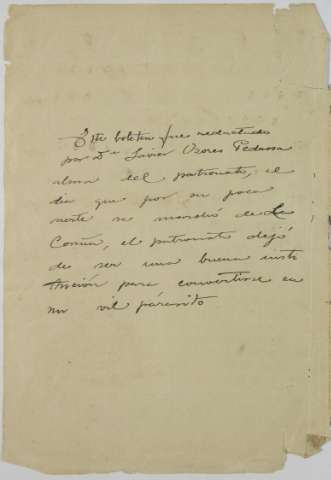 Este boletin fue redactado
por Dn Javier Ozores Pedrosa
alma del patronato, el
dia que por su poca
suerte se marchó de La
Coruña, el patronato dejó
de ser una buena insti
tución para convertirse en
un vil párasito